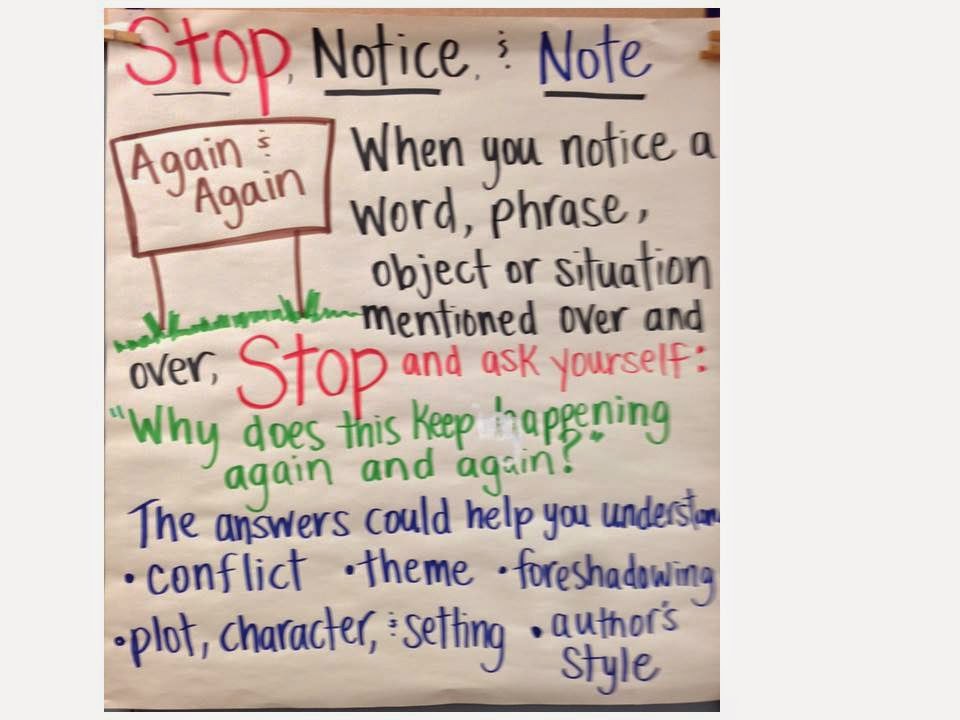 Stop, Notice, & Note
Again &
Again
When you notice a
word, phrase,
object or situation
mentioned over and
over, Stop and ask yourself:
"Why does this keep happening
again and again?"
The answers could help you understan
• conflict • theme • foreshadowing
• plot, character, & setting • author's
style